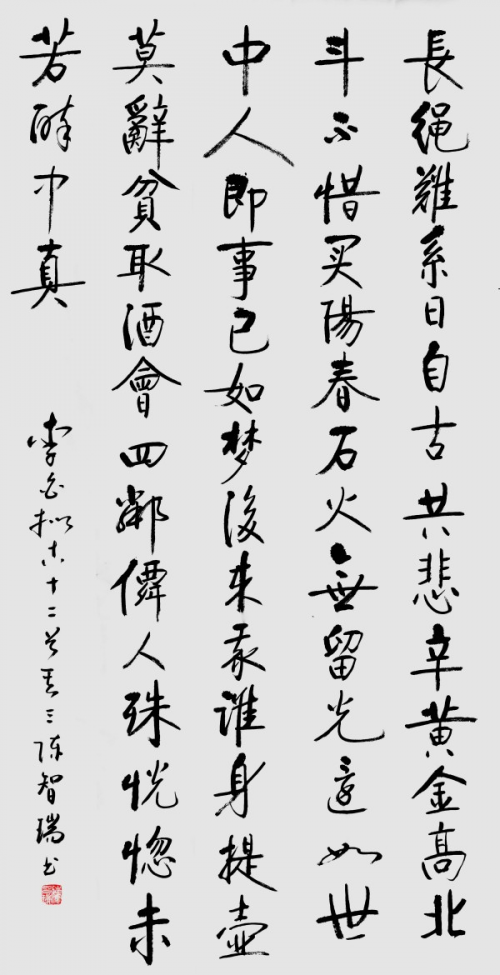 長绳難系日自古共悲辛黄金高北
斗不惜买陽春石火無留光還如世
中人即事已如梦後来我谁身提壶
莫辭貧取酒會四鄰僊人殊恍惚未
若醉中真
李白拟古十二首其三陈智瑞书